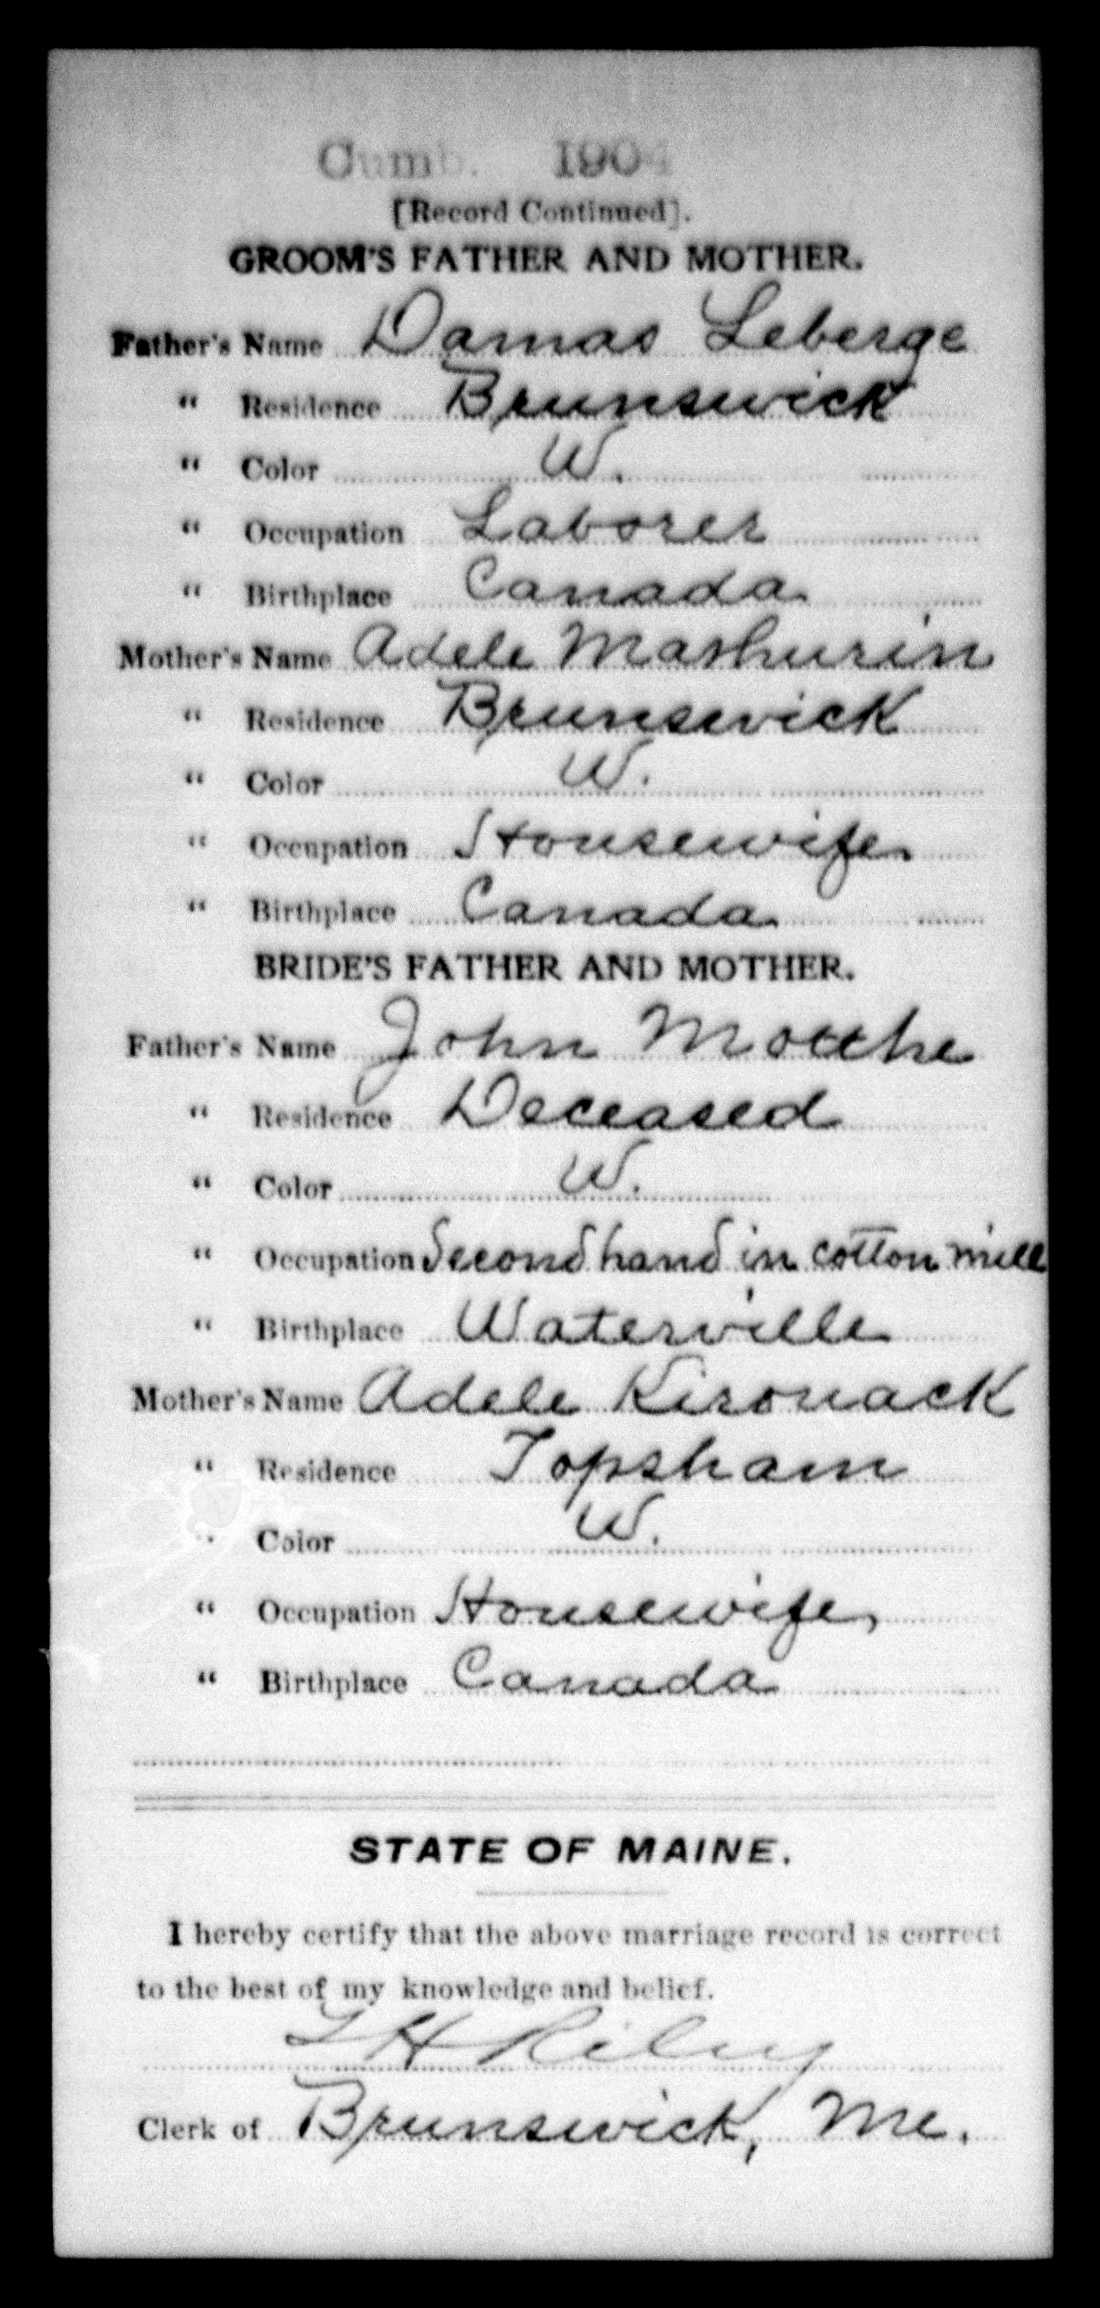 Cumb. 1904
[Record Continued].
GROOM'S FATHER AND MOTHER.
Father's Name Damas Leberge
" Residence Brunswick
" Color W.
" Occupation Laborer
" Birthplace Canada
Mother's Name Adele Mashurin
" Residence Brunswick
" Color W.
" Occupation Housewife
" Birthplace Canada
BRIDE'S FATHER AND MOTHER.
Father's Name John Motthe
" Residence Deceased
" Color W.
" Occupation Second hand in cotton mill
" Birthplace Waterville
Mother's Name Adele Kirouack
" Residence Topsham
" Color W.
" Occupation Housewife,
" Birthplace Canada
STATE OF MAINE.
I hereby certify that the above marriage record is correct
to the best of my knowledge and belief.
L H Riley
Clerk of Brunswick, Me.